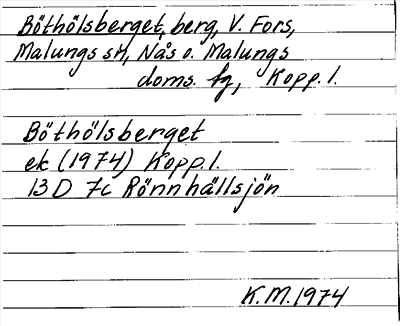 Böthölsberget, berg, V. Fors,
Malungs sn, Nås o. Malungs
doms. fg, Kopp. l.
Böthölsberget
ek (1974) Kopp. l.
13 D 7c Rönnhällsjön
K.M. 1974